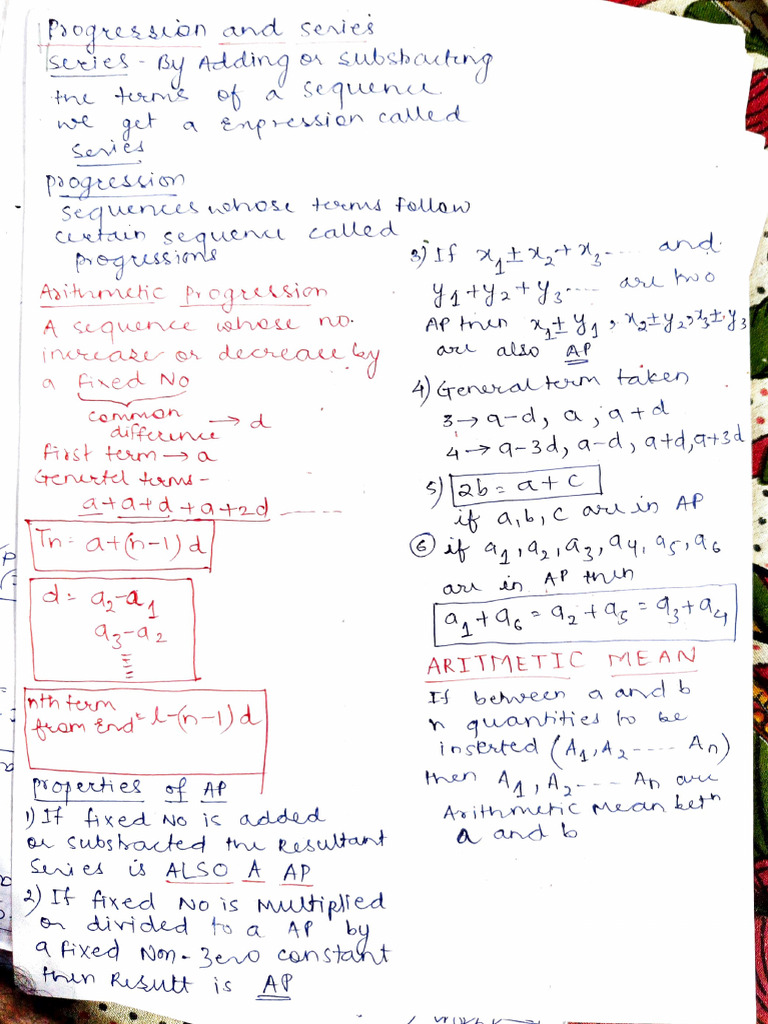 Progression and series
Series - By Adding or substracting
the terms of a sequence.
we get a Expression called
Series
progression
sequences whose terms follow
certain sequence called
progressions
Arithmetic Progression
A sequence whose no.
increase or decrease by
a fixed No
common
difference → d
first term → a
Genertel terms -
a+a+d+a+2d ------
Tn = a+(n-1)d
d = a₂-a₁
a₃-a₂
nth term
from End = l-(n-1)d
properties of AP
1) If fixed No is added
or substracted the Resultant
Series is ALSO A AP
2) If fixed No is Multiplied
or divided to a AP by
a fixed Non-Zero constant
then Result is AP
3) If x₁ ± x₂ + x₃ ---- and
y₁ + y₂ + y₃ ---- are two
AP then x₁ ± y₁, x₂ ± y₂, x₃ ± y₃
are also AP
4) General term taken
3 → a-d, a, a+d
4 → a-3d, a-d, a+d, a+3d
5) 2b = a+c
if a, b, c are in AP
⑥ if a₁, a₂, a₃, a₄, a₅, a₆
are in AP then
a₁+a₆ = a₂+a₅ = a₃+a₄
ARITMETIC MEAN
If between a and b
n quantities to be
inserted (A₁, A₂ ---- An)
then A₁, A₂ --- An are
Arithmetic Mean betn
a and b